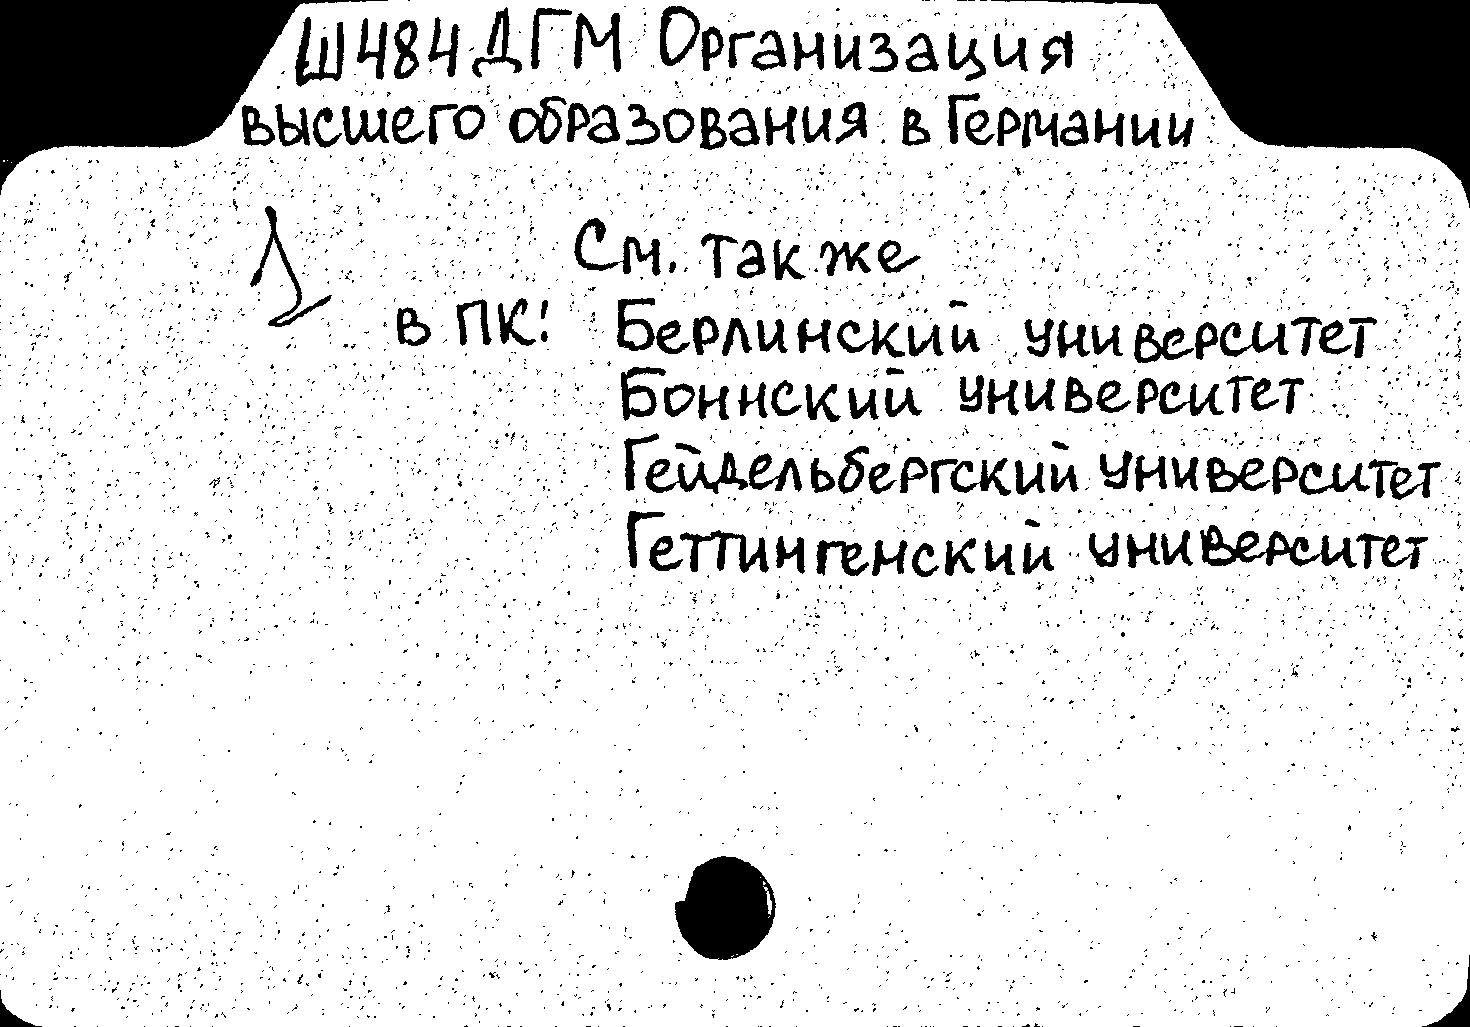 Ш484ДГМ Организация
высшего образования в Германии
См. также
в ПК: Берлинский университет
Боннский университет
Гейдельбергский университет
Геттингенский университет